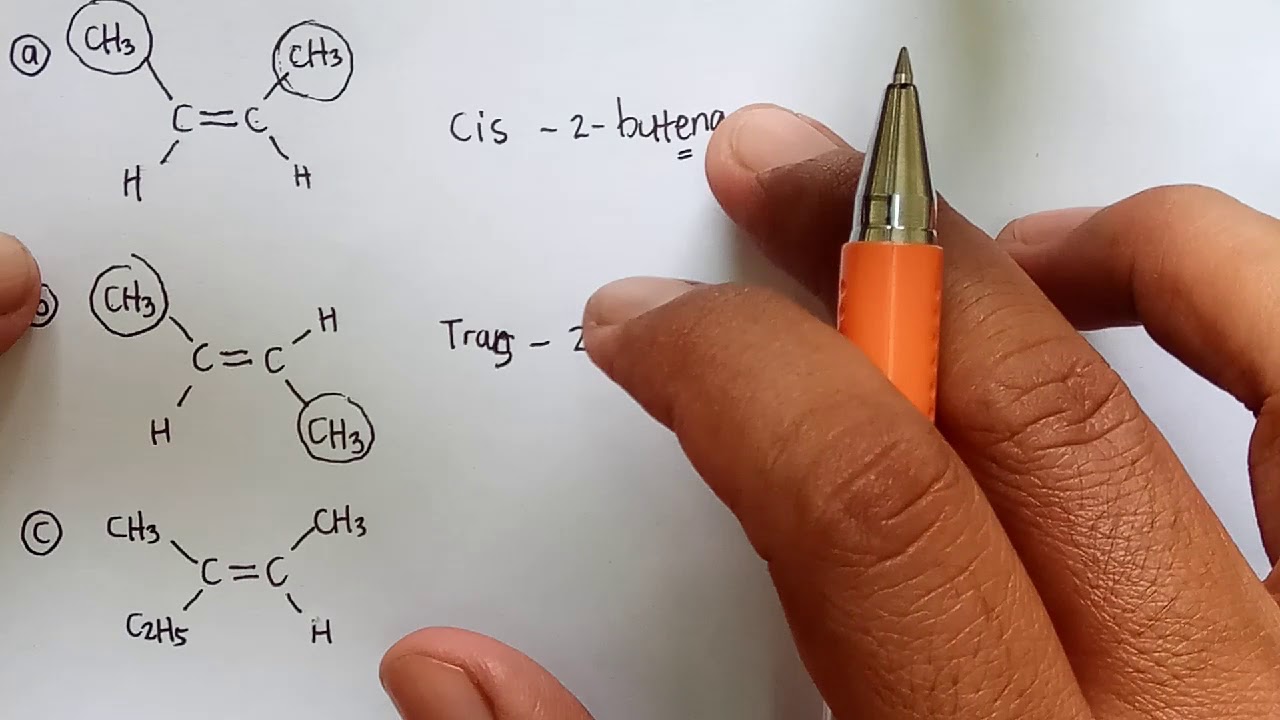 a CH3 CH3
C=C
H H
Cis - 2 - buttena
CH3 H
C=C
H CH3
Trans - 2
c CH3 CH3
C=C
C2H5 H